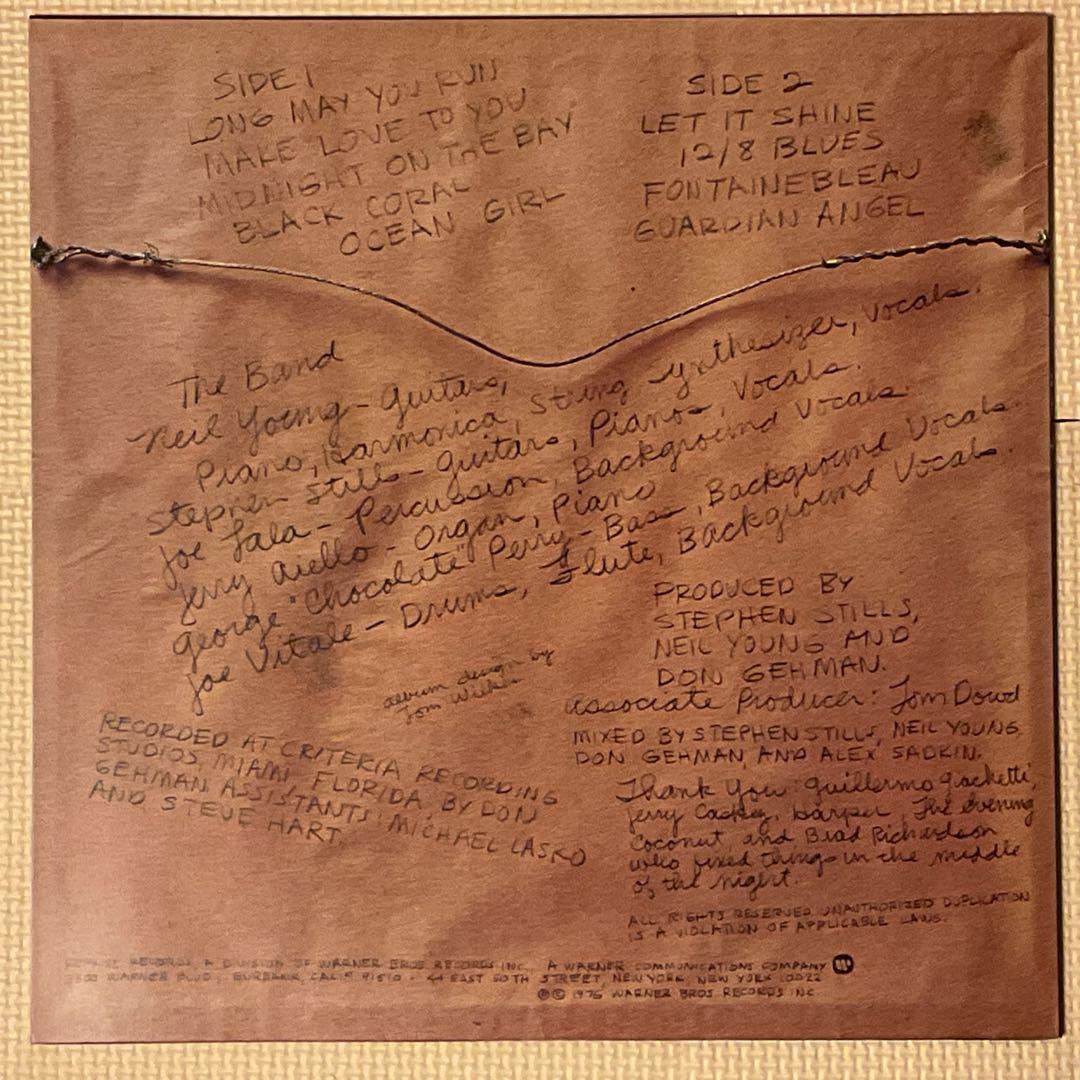 SIDE 1
LONG MAY YOU RUN
MAKE LOVE TO YOU
MIDNIGHT ON THE BAY
BLACK CORAL
OCEAN GIRL
SIDE 2
LET IT SHINE
12/8 BLUES
FONTAINEBLEAU
GUARDIAN ANGEL
The Band
Neil Young - Guitars,
Piano, Harmonica, String Synthesizer, Vocals.
Stephen Stills - Guitars, Pianos, Vocals.
Joe Lala - Percussion, Background Vocals.
Jerry Aiello - Organ, Piano
George "Chocolate" Perry - Bass, Background Vocals.
Joe Vitale - Drums, Flute, Background Vocals.
album design by
Tom Wilkes
RECORDED AT CRITERIA RECORDING
STUDIOS, MIAMI, FLORIDA, BY DON
GEHMAN. ASSISTANTS: MICHAEL LASKO
AND STEVE HART.
PRODUCED BY
STEPHEN STILLS,
NEIL YOUNG AND
DON GEHMAN.
Associate Producer: Tom Dowd
MIXED BY STEPHEN STILLS, NEIL YOUNG,
DON GEHMAN, AND ALEX SADKIN.
Thank You: Guillermo Giachetti,
Jerry Harper, The evening
Coconut and Brad Richardson
who fixed things in the middle
of the night.
ALL RIGHTS RESERVED UNAUTHORIZED DUPLICATION
IS A VIOLATION OF APPLICABLE LAWS.
RECORDS A DIVISION OF WARNER BROS RECORDS INC, A WARNER COMMUNICATIONS COMPANY
WARNER BLVD, BURBANK, CALIF 91510 • 44 EAST 50TH STREET, NEW YORK, NEW YORK 10022
℗ © 1976 WARNER BROS. RECORDS INC